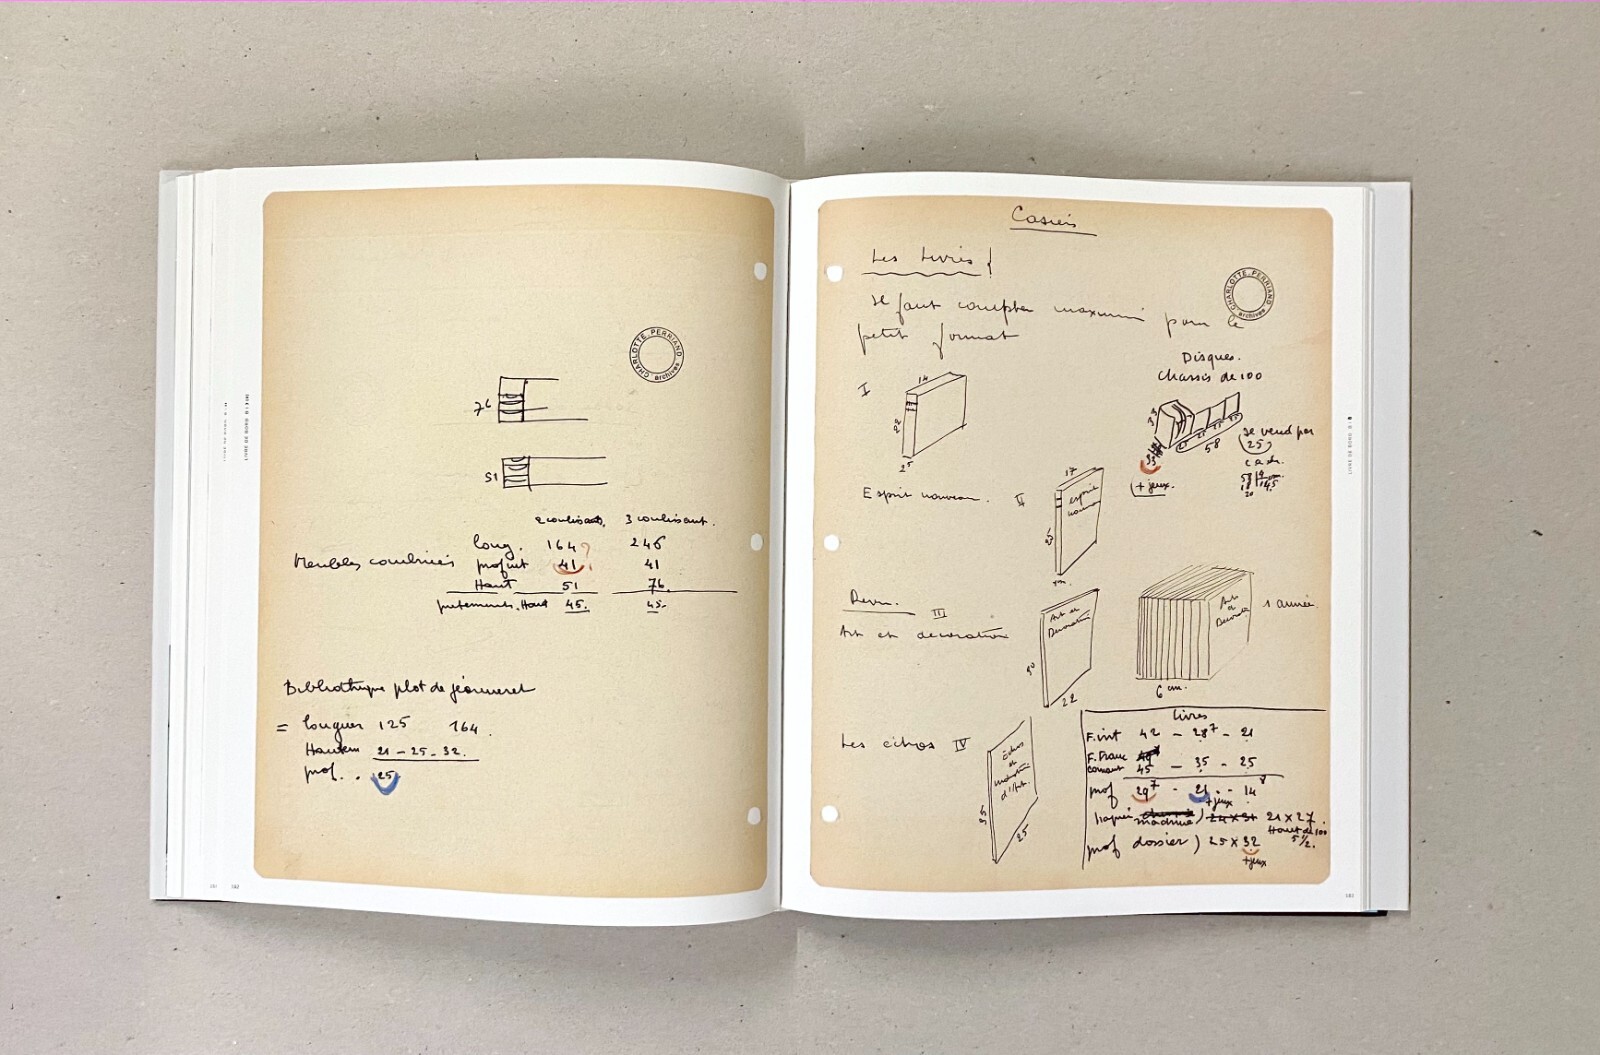 CHARLOTTE PERRIAND archives
76
51
2 coulissants. 3 coulissant.
long. 164? 246
Meubles combinés profint 41 41
Haut 51 76.
Haut 45. 45.
Bibliothèque plot de jeanneret
= longueur 125 164.
Hauteur 21 - 25 - 32.
prof. . 25
LIVRE DE BORD
Casiers
Les Livres
CHARLOTTE PERRIAND archives
Il faut compter maximum pour le
petit format
Disques.
Chassis de 100
I
14
22
25
33
58
se vend par
25
+ jeux.
Esprit nouveau. II
17
esprit
nouveau
25
Revu.
III
Art et décoration
Art et
Décoration
22
Art
et
Décorat
1 année.
6 cm.
Les échos IV
Echos
et
industrie
d'Art.
35
25
Livres
F. int 42 - 28⁷ - 21
F. Franc
courant 45 - 35 - 25
prof 29⁷ - 21. - 14⁸
+ jeux
papier machine) 21 x 27.
Haut de 100
5 1/2.
prof dossier) 25 x 32
+ jeux